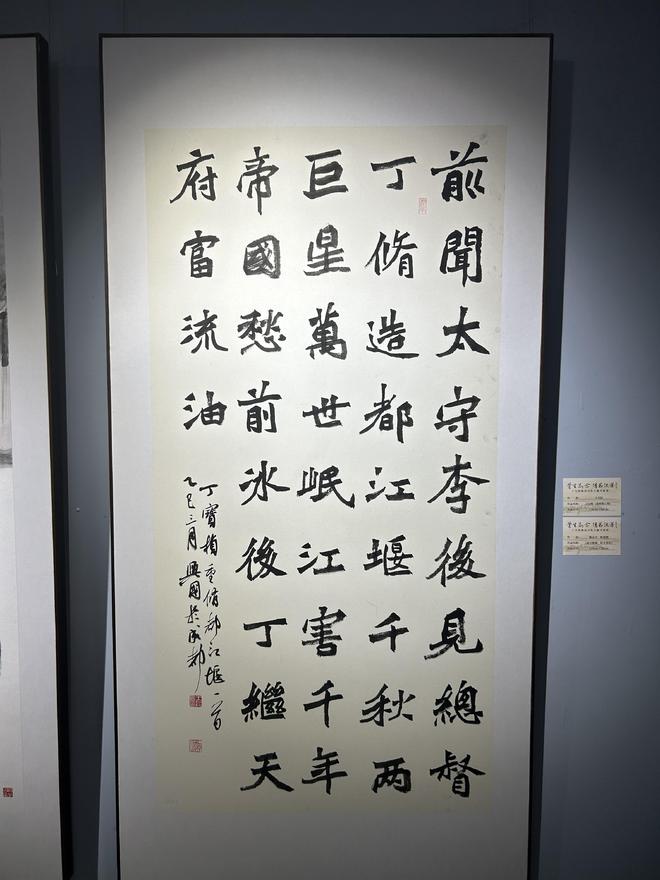 前聞太守李後見總督
丁脩造都江堰千秋两
巨星萬世岷江害千年
帝國愁前冰後丁繼天
府富流油
丁寶楨重脩都江堰一首
乙巳三月興國於成都